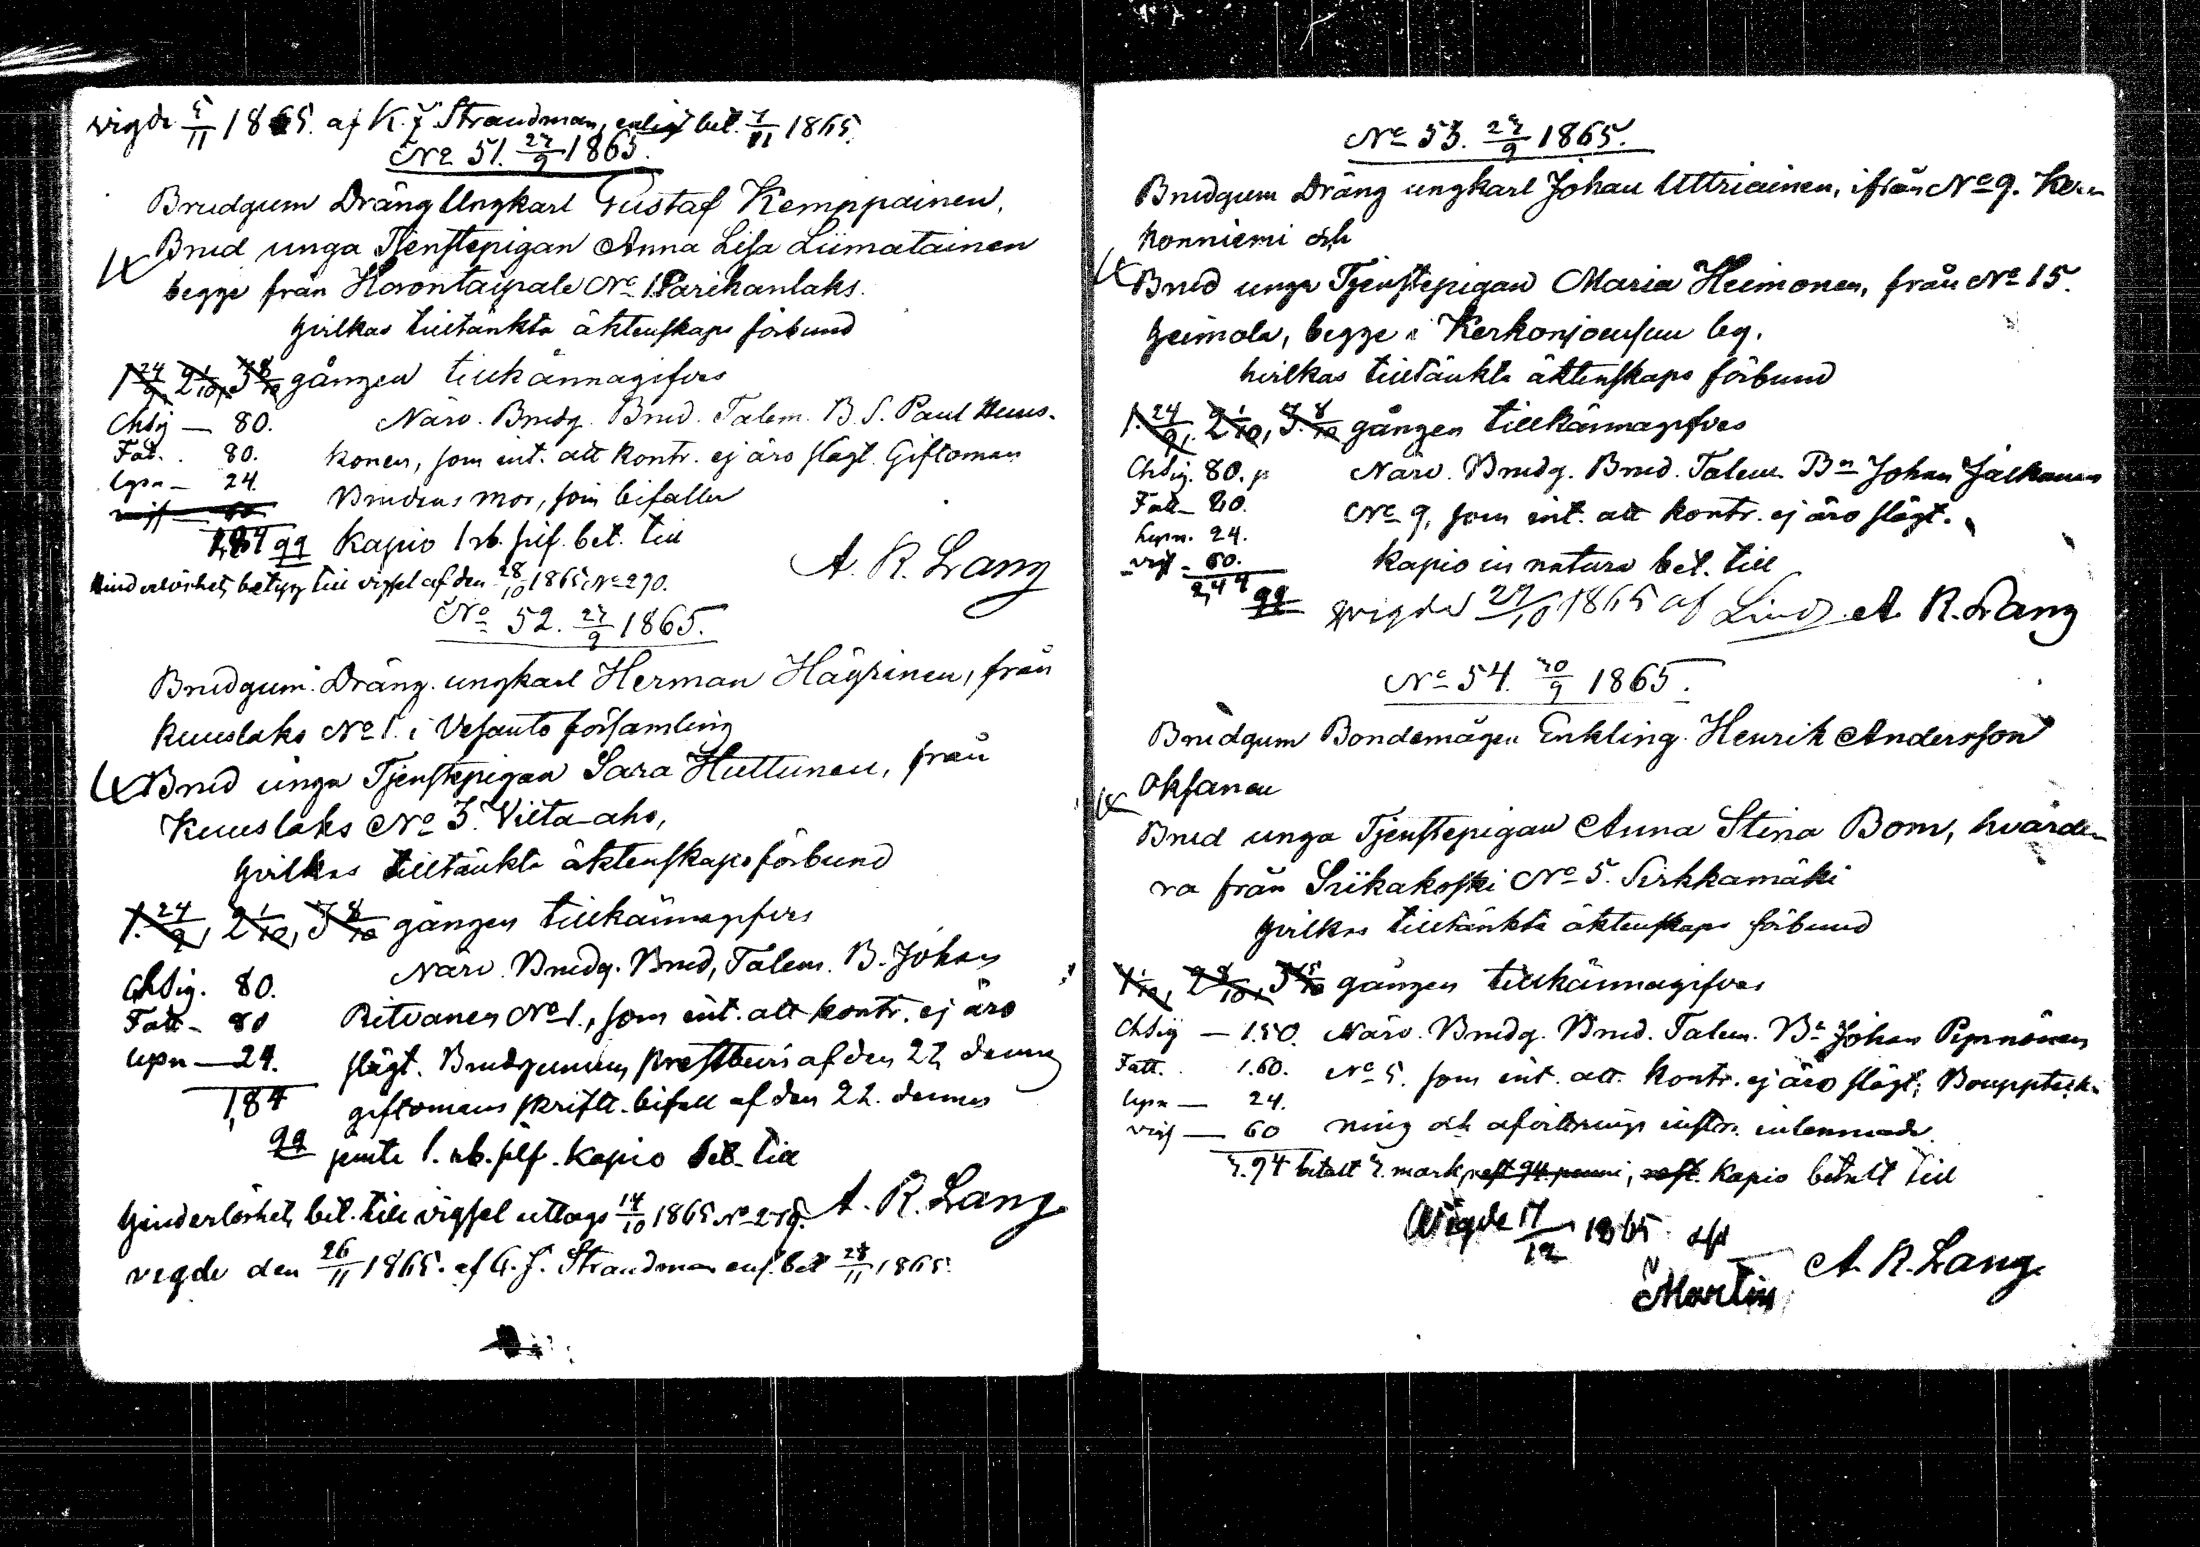 vigde 5/11 1865. af K. J. Strandman, enligt bet. 7/11 1865.
No 51. 23/9 1865.
Brudgum Dräng Ungkarl Gustaf Kemppainen,
Brud unga Tjenstepigan Anna Lisa Liimatainen
begge från Horontaipale No 1 Parikanlaks.
hvilkas tilltänkta äktenskaps förbund
1 24/9, 2 1/10, 3 8/10 gången tillkännagifves
Chsig — 80. Närv. Brudg. Brud. Talem. B. S. Paul Huus-
Fatt. . 80. konen, som int. att kontr. ej äro slägt. Giftoman
lysn — 24. Brudens mor, som bifaller
1,84 qq Kapio 1 rb. silf. bet. till
A. R. Lang
Hinderlöshets betyg till vigsel af den 28/10 1865 No 290.
No 52. 23/9 1865.
Brudgum. Dräng. ungkarl Herman Häyrinen, från
Kuuslaks No 1. i Vesanto församling
Brud unga Tjenstepigan Sara Huttunen, från
Kuuslaks No 3. Viita-aho,
hvilkas tilltänkta äktenskaps förbund
1. 24/9, 2 1/10, 3 8/10 gången tillkännagifves
Närv. Brudg. Brud, Talem. B. Johan
Chsig. 80.
Fatt - 80 Ritvanen No 1., som int. att kontr. ej äro
lysn — 24. slägt. Brudgummens prestbevis af den 22 dennes
1,84 giftomans skriftl. bifall af den 22. dennes
qq jemte 1. rb. silf. Kapio bet. till
A. R. Lang
Hinderlöshets bet. till vigsel uttags 14/10 1865 No 279.
vigde den 26/11 1865. af C. J. Strandman enl. bet 28/11 1865.
No 53. 23/9 1865.
Brudgum Dräng ungkarl Johan Uttriainen, ifrån No 9. Ker-
konniemi och
Brud unga Tjenstepigan Maria Heimonen, från No 15.
Heimola, begge i Kerkonjoensuu beg.
hvilkas tilltänkta äktenskaps förbund
1. 24/9, 2 1/10, 3. 8/10 gången tillkännagifves
Chsig. 80. p Närv. Brudg. Brud. Talem. Bn Johan Jalkanen
Fatt - 80. No 9, som int. att kontr. ej äro slägt.
Lysn. 24.
vigs - 60. Kapio in natura bet. till
2,44 qq
vigde 29/10 1865 af Lind A. R. Lang
No 54. 30/9 1865.
Brudgum Bondemågen Enkling. Henrik Andersson
Oksanen
Brud unga Tjenstepigan Anna Stina Bom, hvarde-
ra från Siikakoski No 5. Sirkkamäki
hvilkas tilltänkta äktenskaps förbund
1 1/10, 2 8/10, 3 15/10 gången tillkännagifves
Chsig — 1.50. Närv. Brudg. Brud. Talem. Bn Johan Pynnönen
Fatt. . 1.60. No 5. som int. att. kontr. ej äro slägt; Bouppteck-
lysn — 24.
vigs — 60 ning och afvittrings instr. inlemnade.
3.94 betalt 3. mark, rest 94 penni, rest. Kapio betalt till
Vigde 17/12 1865 af
Martin
A. R. Lang.